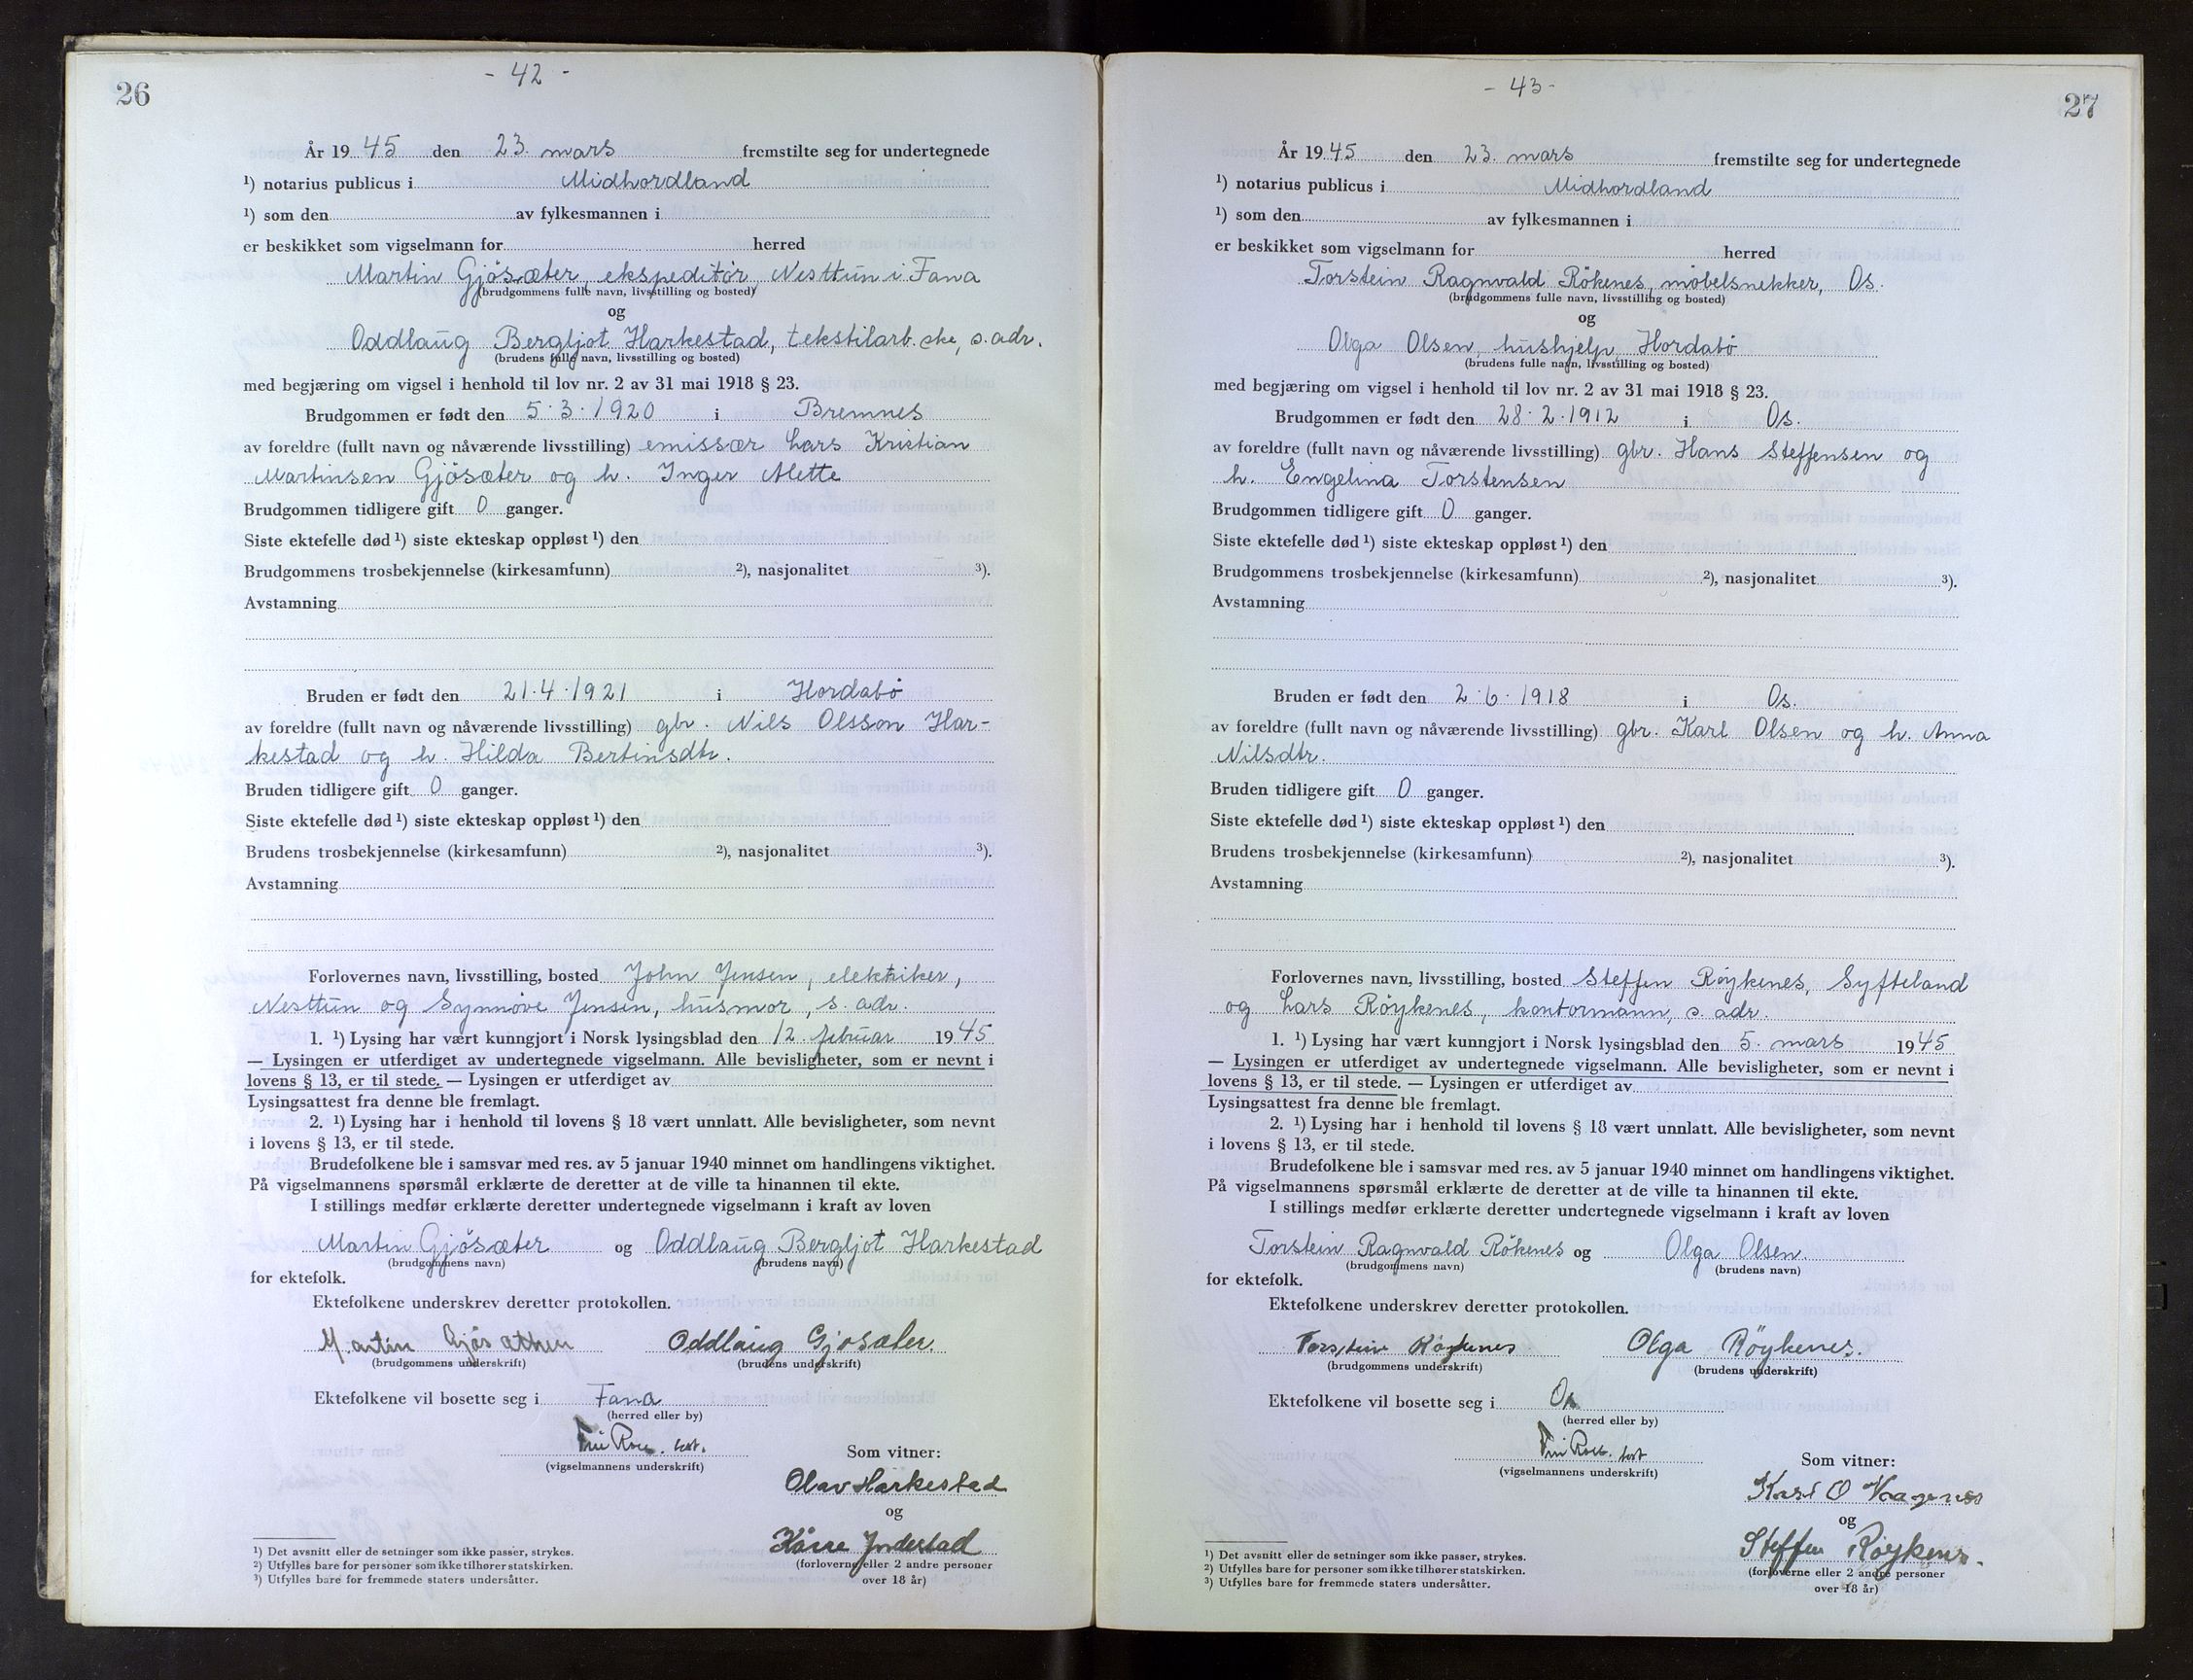 26
- 42 -
År 19 45 den 23. mars fremstilte seg for undertegnede
¹) notarius publicus i Midhordland
¹) som den av fylkesmannen i
er beskikket som vigselmann for herred
Martin Gjøsæter, ekspeditør Nesttun i Fana
(brudgommens fulle navn, livsstilling og bosted)
og
Oddlaug Bergljot Harkestad, tekstilarb.ske, s. adr.
(brudens fulle navn, livsstilling og bosted)
med begjæring om vigsel i henhold til lov nr. 2 av 31 mai 1918 § 23.
Brudgommen er født den 5·3·1920 i Bremnes
av foreldre (fullt navn og nåværende livsstilling) emissær Lars Kristian
Martinsen Gjøsæter og h. Inger Mette
Brudgommen tidligere gift 0 ganger.
Siste ektefelle død ¹) siste ekteskap oppløst ¹) den
Brudgommens trosbekjennelse (kirkesamfunn) ²), nasjonalitet ³).
Avstamning
Bruden er født den 21·4·1921 i Hordabø
av foreldre (fullt navn og nåværende livsstilling) gbr. Nils Olsson Har-
kestad og h. Hilda Bertinsdtr.
Bruden tidligere gift 0 ganger.
Siste ektefelle død ¹) siste ekteskap oppløst ¹) den
Brudens trosbekjennelse (kirkesamfunn) ²), nasjonalitet ³).
Avstamning
Forlovernes navn, livsstilling, bosted John Jensen, elektriker,
Nesttun og Synnøve Jensen, husmor, s. adr.
1. ¹) Lysing har vært kunngjort i Norsk lysingsblad den 12. februar 19 45
— Lysingen er utferdiget av undertegnede vigselmann. Alle bevisligheter, som er nevnt i
lovens § 13, er til stede. — Lysingen er utferdiget av
Lysingsattest fra denne ble fremlagt.
2. ¹) Lysing har i henhold til lovens § 18 vært unnlatt. Alle bevisligheter, som nevnt
i lovens § 13, er til stede.
Brudefolkene ble i samsvar med res. av 5 januar 1940 minnet om handlingens viktighet.
På vigselmannens spørsmål erklærte de deretter at de ville ta hinannen til ekte.
I stillings medfør erklærte deretter undertegnede vigselmann i kraft av loven
Martin Gjøsæter og Oddlaug Bergljot Harkestad
(brudgommens navn) (brudens navn)
for ektefolk.
Ektefolkene underskrev deretter protokollen.
Martin Gjøsæther Oddlaug Gjøsæter.
(brudgommens underskrift) (brudens underskrift)
Ektefolkene vil bosette seg i Fana
(herred eller by)
(vigselmannens underskrift)
Som vitner:
Olav Harkestad
og
Kåre Indestad
(forloverne eller 2 andre personer
over 18 år)
¹) Det avsnitt eller de setninger som ikke passer, strykes.
²) Utfylles bare for personer som ikke tilhører statskirken.
³) Utfylles bare for fremmede staters undersåtter.
27
- 43 -
År 19 45 den 23. mars fremstilte seg for undertegnede
¹) notarius publicus i Midhordland
¹) som den av fylkesmannen i
er beskikket som vigselmann for herred
Torstein Ragnvald Rökenes, møbelsnekker, Os.
(brudgommens fulle navn, livsstilling og bosted)
og
Olga Olsen, hushjelp, Hordabø
(brudens fulle navn, livsstilling og bosted)
med begjæring om vigsel i henhold til lov nr. 2 av 31 mai 1918 § 23.
Brudgommen er født den 28·2·1912 i Os.
av foreldre (fullt navn og nåværende livsstilling) gbr. Hans Steffensen og
h. Engelina Torstensen
Brudgommen tidligere gift 0 ganger.
Siste ektefelle død ¹) siste ekteskap oppløst ¹) den
Brudgommens trosbekjennelse (kirkesamfunn) ²), nasjonalitet ³).
Avstamning
Bruden er født den 2·6·1918 i Os.
av foreldre (fullt navn og nåværende livsstilling) gbr. Karl Olsen og h. Anna
Nilsdtr.
Bruden tidligere gift 0 ganger.
Siste ektefelle død ¹) siste ekteskap oppløst ¹) den
Brudens trosbekjennelse (kirkesamfunn) ²), nasjonalitet ³).
Avstamning
Forlovernes navn, livsstilling, bosted Steffen Røykenes, Syfteland
og Lars Røykenes, kontormann, s. adr.
1. ¹) Lysing har vært kunngjort i Norsk lysingsblad den 5. mars 19 45
— Lysingen er utferdiget av undertegnede vigselmann. Alle bevisligheter, som er nevnt i
lovens § 13, er til stede. — Lysingen er utferdiget av
Lysingsattest fra denne ble fremlagt.
2. ¹) Lysing har i henhold til lovens § 18 vært unnlatt. Alle bevisligheter, som nevnt
i lovens § 13, er til stede.
Brudefolkene ble i samsvar med res. av 5 januar 1940 minnet om handlingens viktighet.
På vigselmannens spørsmål erklærte de deretter at de ville ta hinannen til ekte.
I stillings medfør erklærte deretter undertegnede vigselmann i kraft av loven
Torstein Ragnvald Rökenes og Olga Olsen.
(brudgommens navn) (brudens navn)
for ektefolk.
Ektefolkene underskrev deretter protokollen.
Torstein Røykenes Olga Röykenes.
(brudgommens underskrift) (brudens underskrift)
Ektefolkene vil bosette seg i Os
(herred eller by)
(vigselmannens underskrift)
Som vitner:
Karl O
og
Steffen Röykenes.
(forloverne eller 2 andre personer
over 18 år)
¹) Det avsnitt eller de setninger som ikke passer, strykes.
²) Utfylles bare for personer som ikke tilhører statskirken.
³) Utfylles bare for fremmede staters undersåtter.